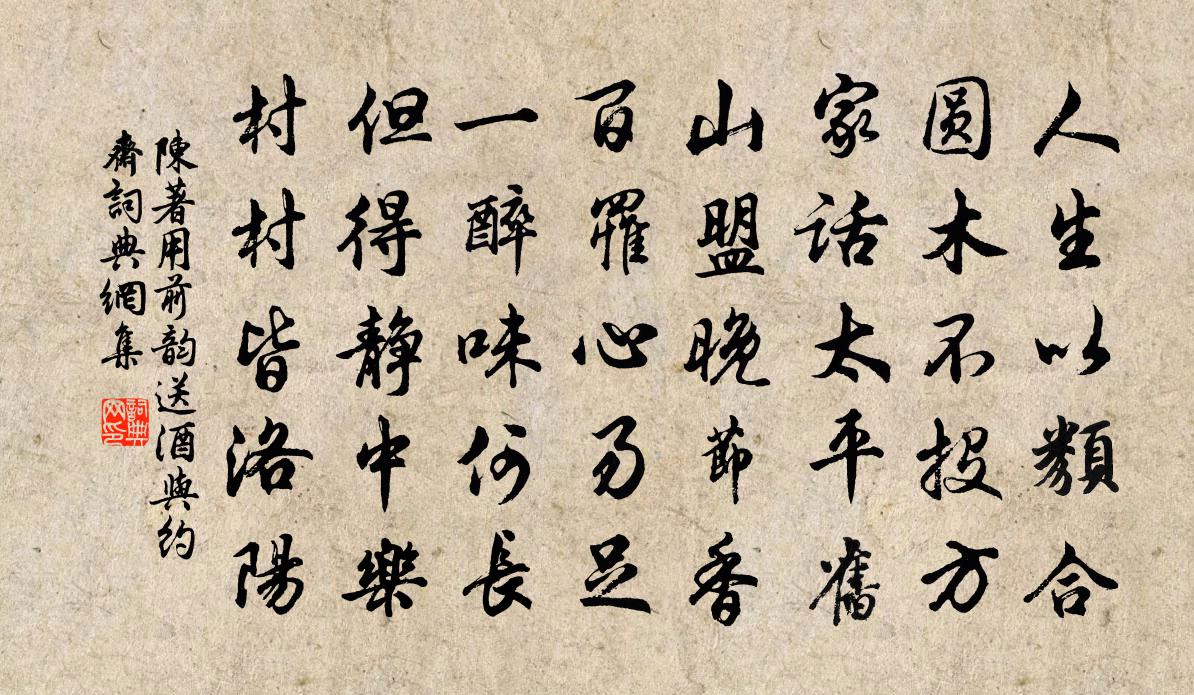 人生以類合
圓木不投方
家話太平舊
山盟晚節香
百罹心易足
一醉味何長
但得靜中樂
村村皆洛陽
陳著用前韵送酒與約
齋詞典網集
詞典
网印